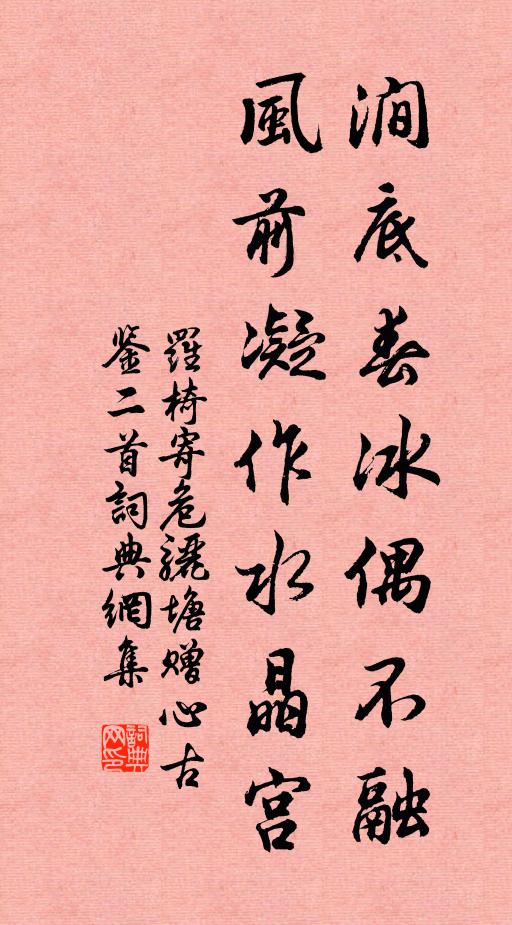 澗底春冰偶不融
風前凝作水晶宮
羅椅寄危驪塘贈心古
鉴二首詞典網集
詞典网印